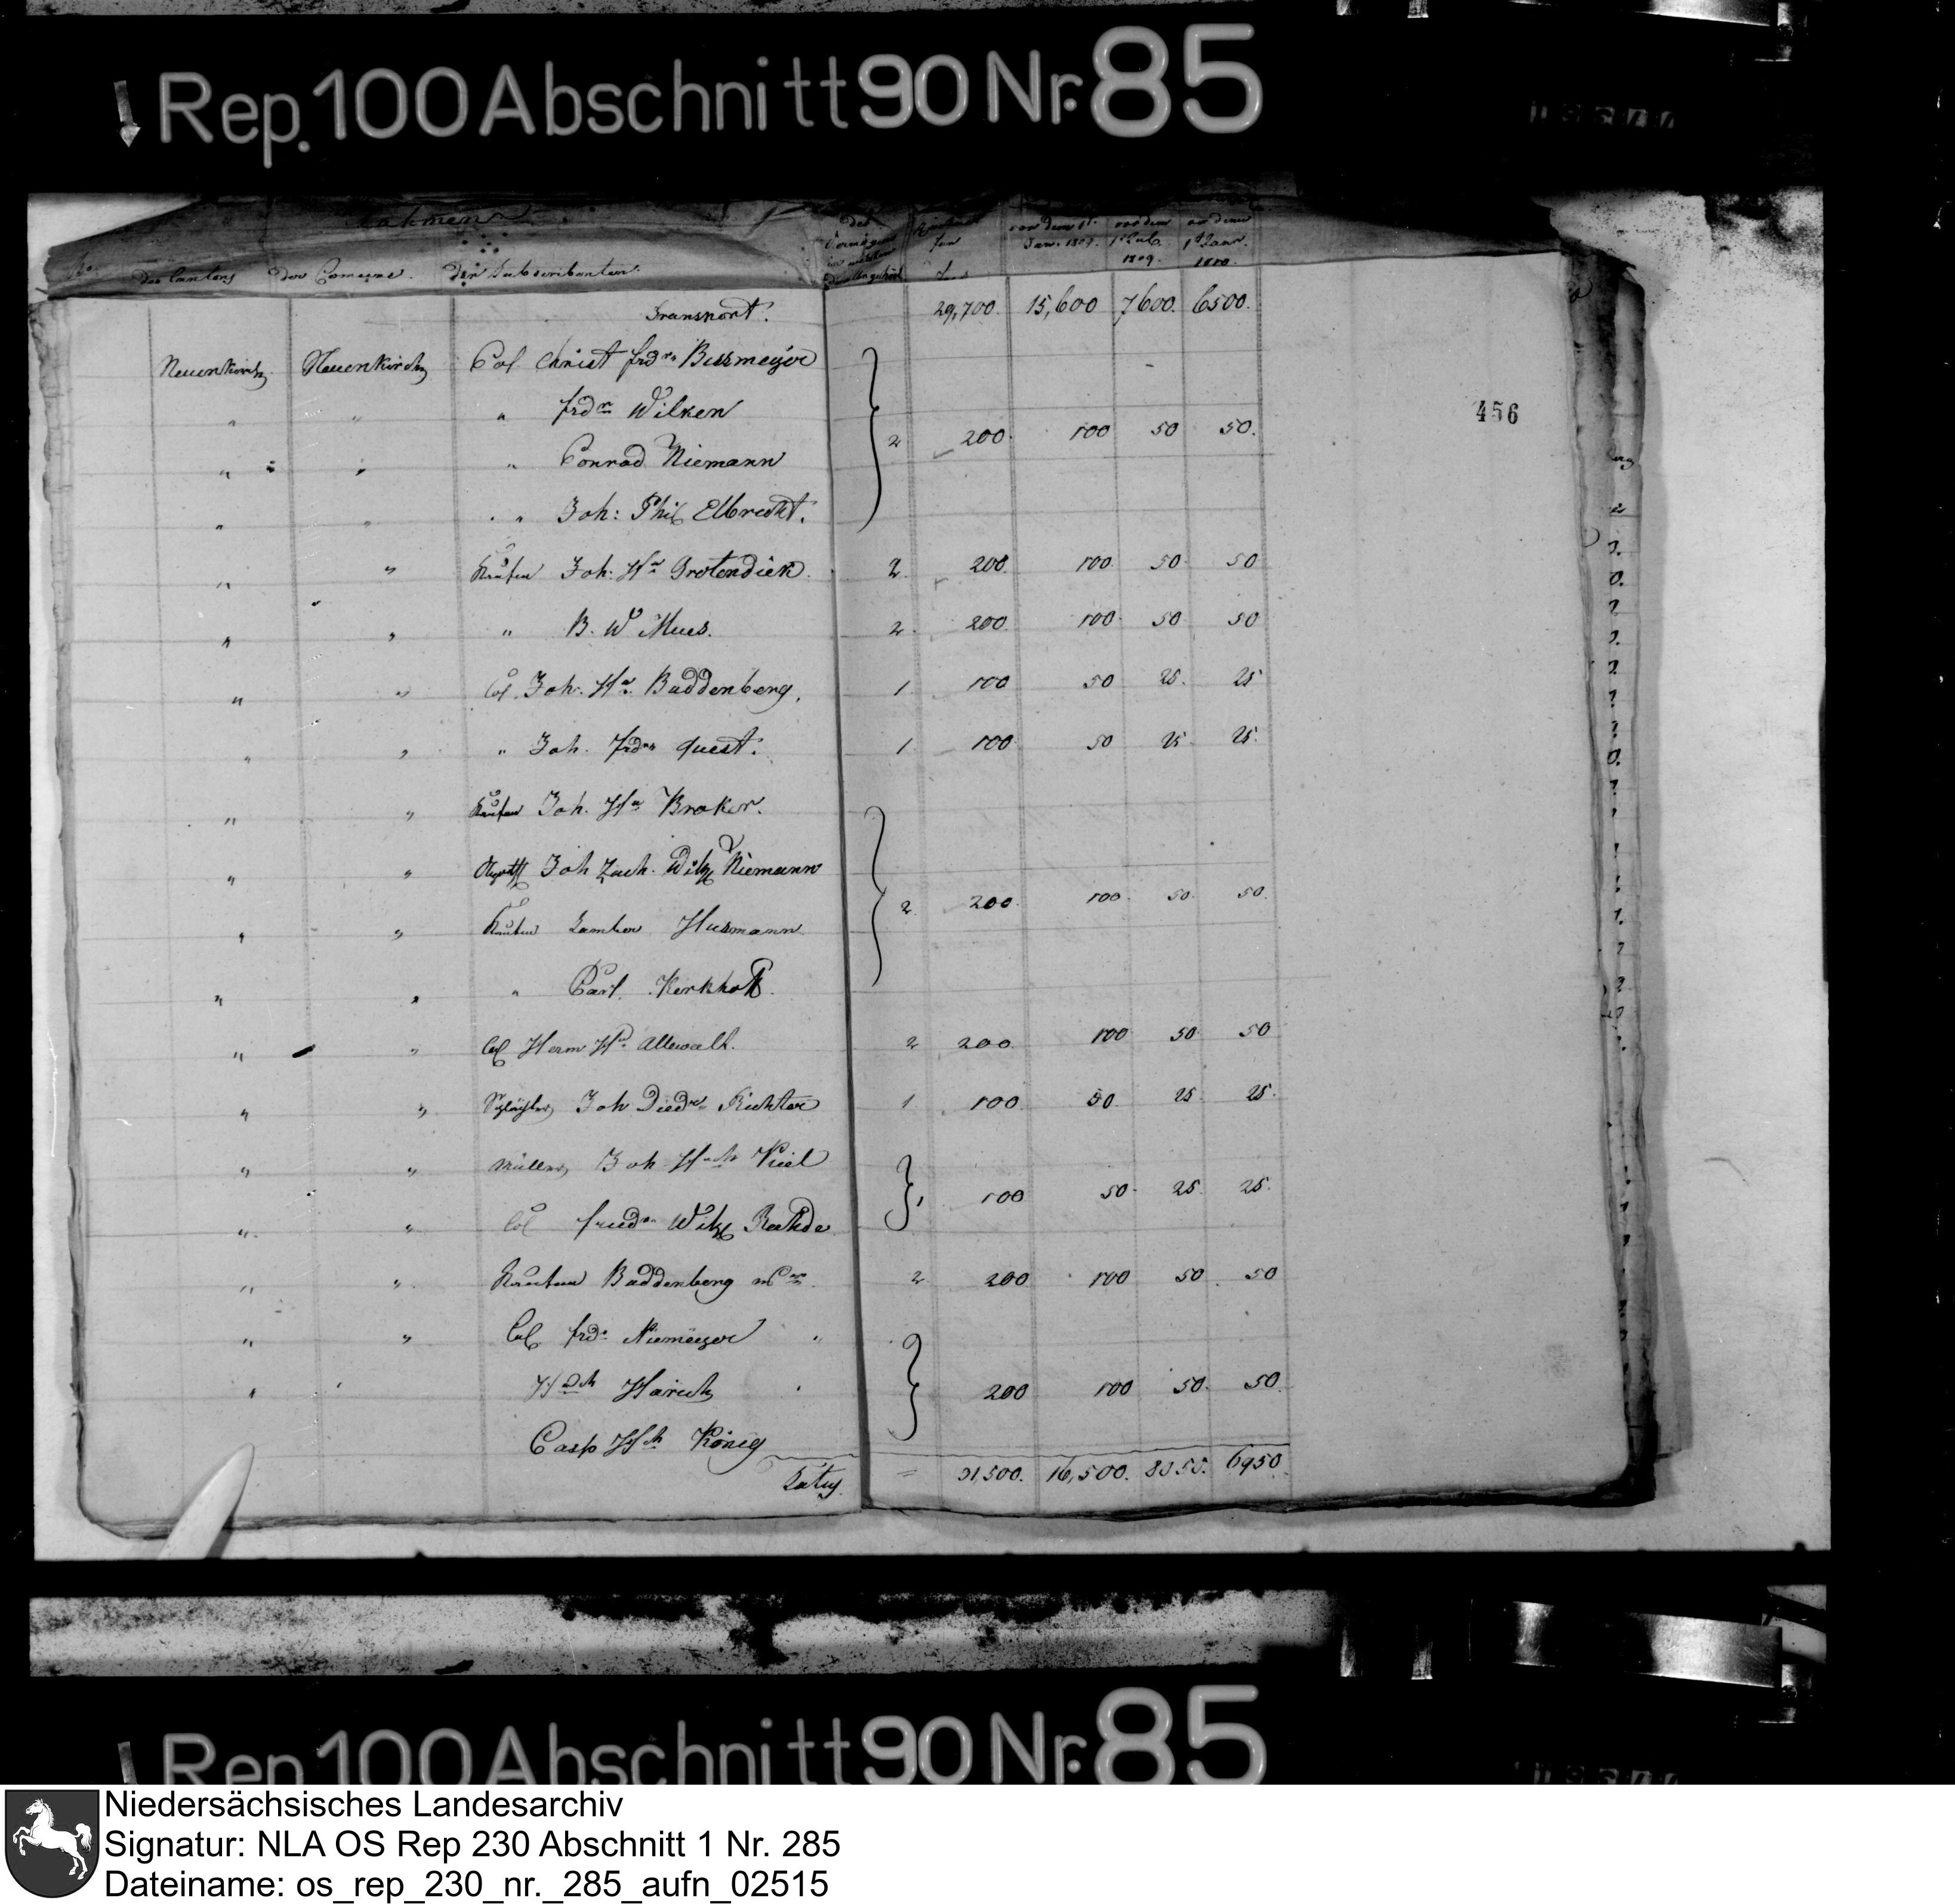 Rep. 100 Abschnitt 90 Nr. 85
Nahmen
des Cantons der Comeune. der Subscribenten. des Vermögens vor dem 1t. Jan. 1809. vor dem 1t Jul. 1809. vor dem 1t Janr. 1810.
Transport. 29,700. 15,600 7600. 6500.
456
Neuenkirch Neuenkirch Col Christ frdr. Bussmeyer
" " " frdr Wilken
" " " Conrad Niemann 2 200 100 50 50.
" " " Joh: Phil Elbrecht.
" " Kaufm Joh: Hr Grotendiek. 2 200 100 50 50
" " " B. W Mues. 2 200 100 50 50
" " Col. Joh. Hr. Buddenberg. 1 100 50 25. 25
" " " Joh. frdr quest. 1 100 50 25 25.
" " Kaufm Joh. Hr Broker.
" " Joh Zach. Wilh Niemann
" " Kaufm Husmann 2 200 100 50 50.
" " " Carl Kerkhoff.
" " Col Herm Hr. Allewalt. 2 200 100 50 50
" " Joh Diedr. Richter 1 100 50 25 25.
" " Müller Joh Hch Kiel
" " Col friedr. Wilh 1 100 50. 25 25.
" " Kaufm Buddenberg 2 200 100 50 50
" " Col frdr. Niemeyer "
" ' Hch " 200 100 50. 50.
Casp Hch König
Latus = 31,500. 16,500. 8050. 6950
Rep. 100 Abschnitt 90 Nr. 85
Niedersächsisches Landesarchiv
Signatur: NLA OS Rep 230 Abschnitt 1 Nr. 285
Dateiname: os_rep_230_nr._285_aufn_02515